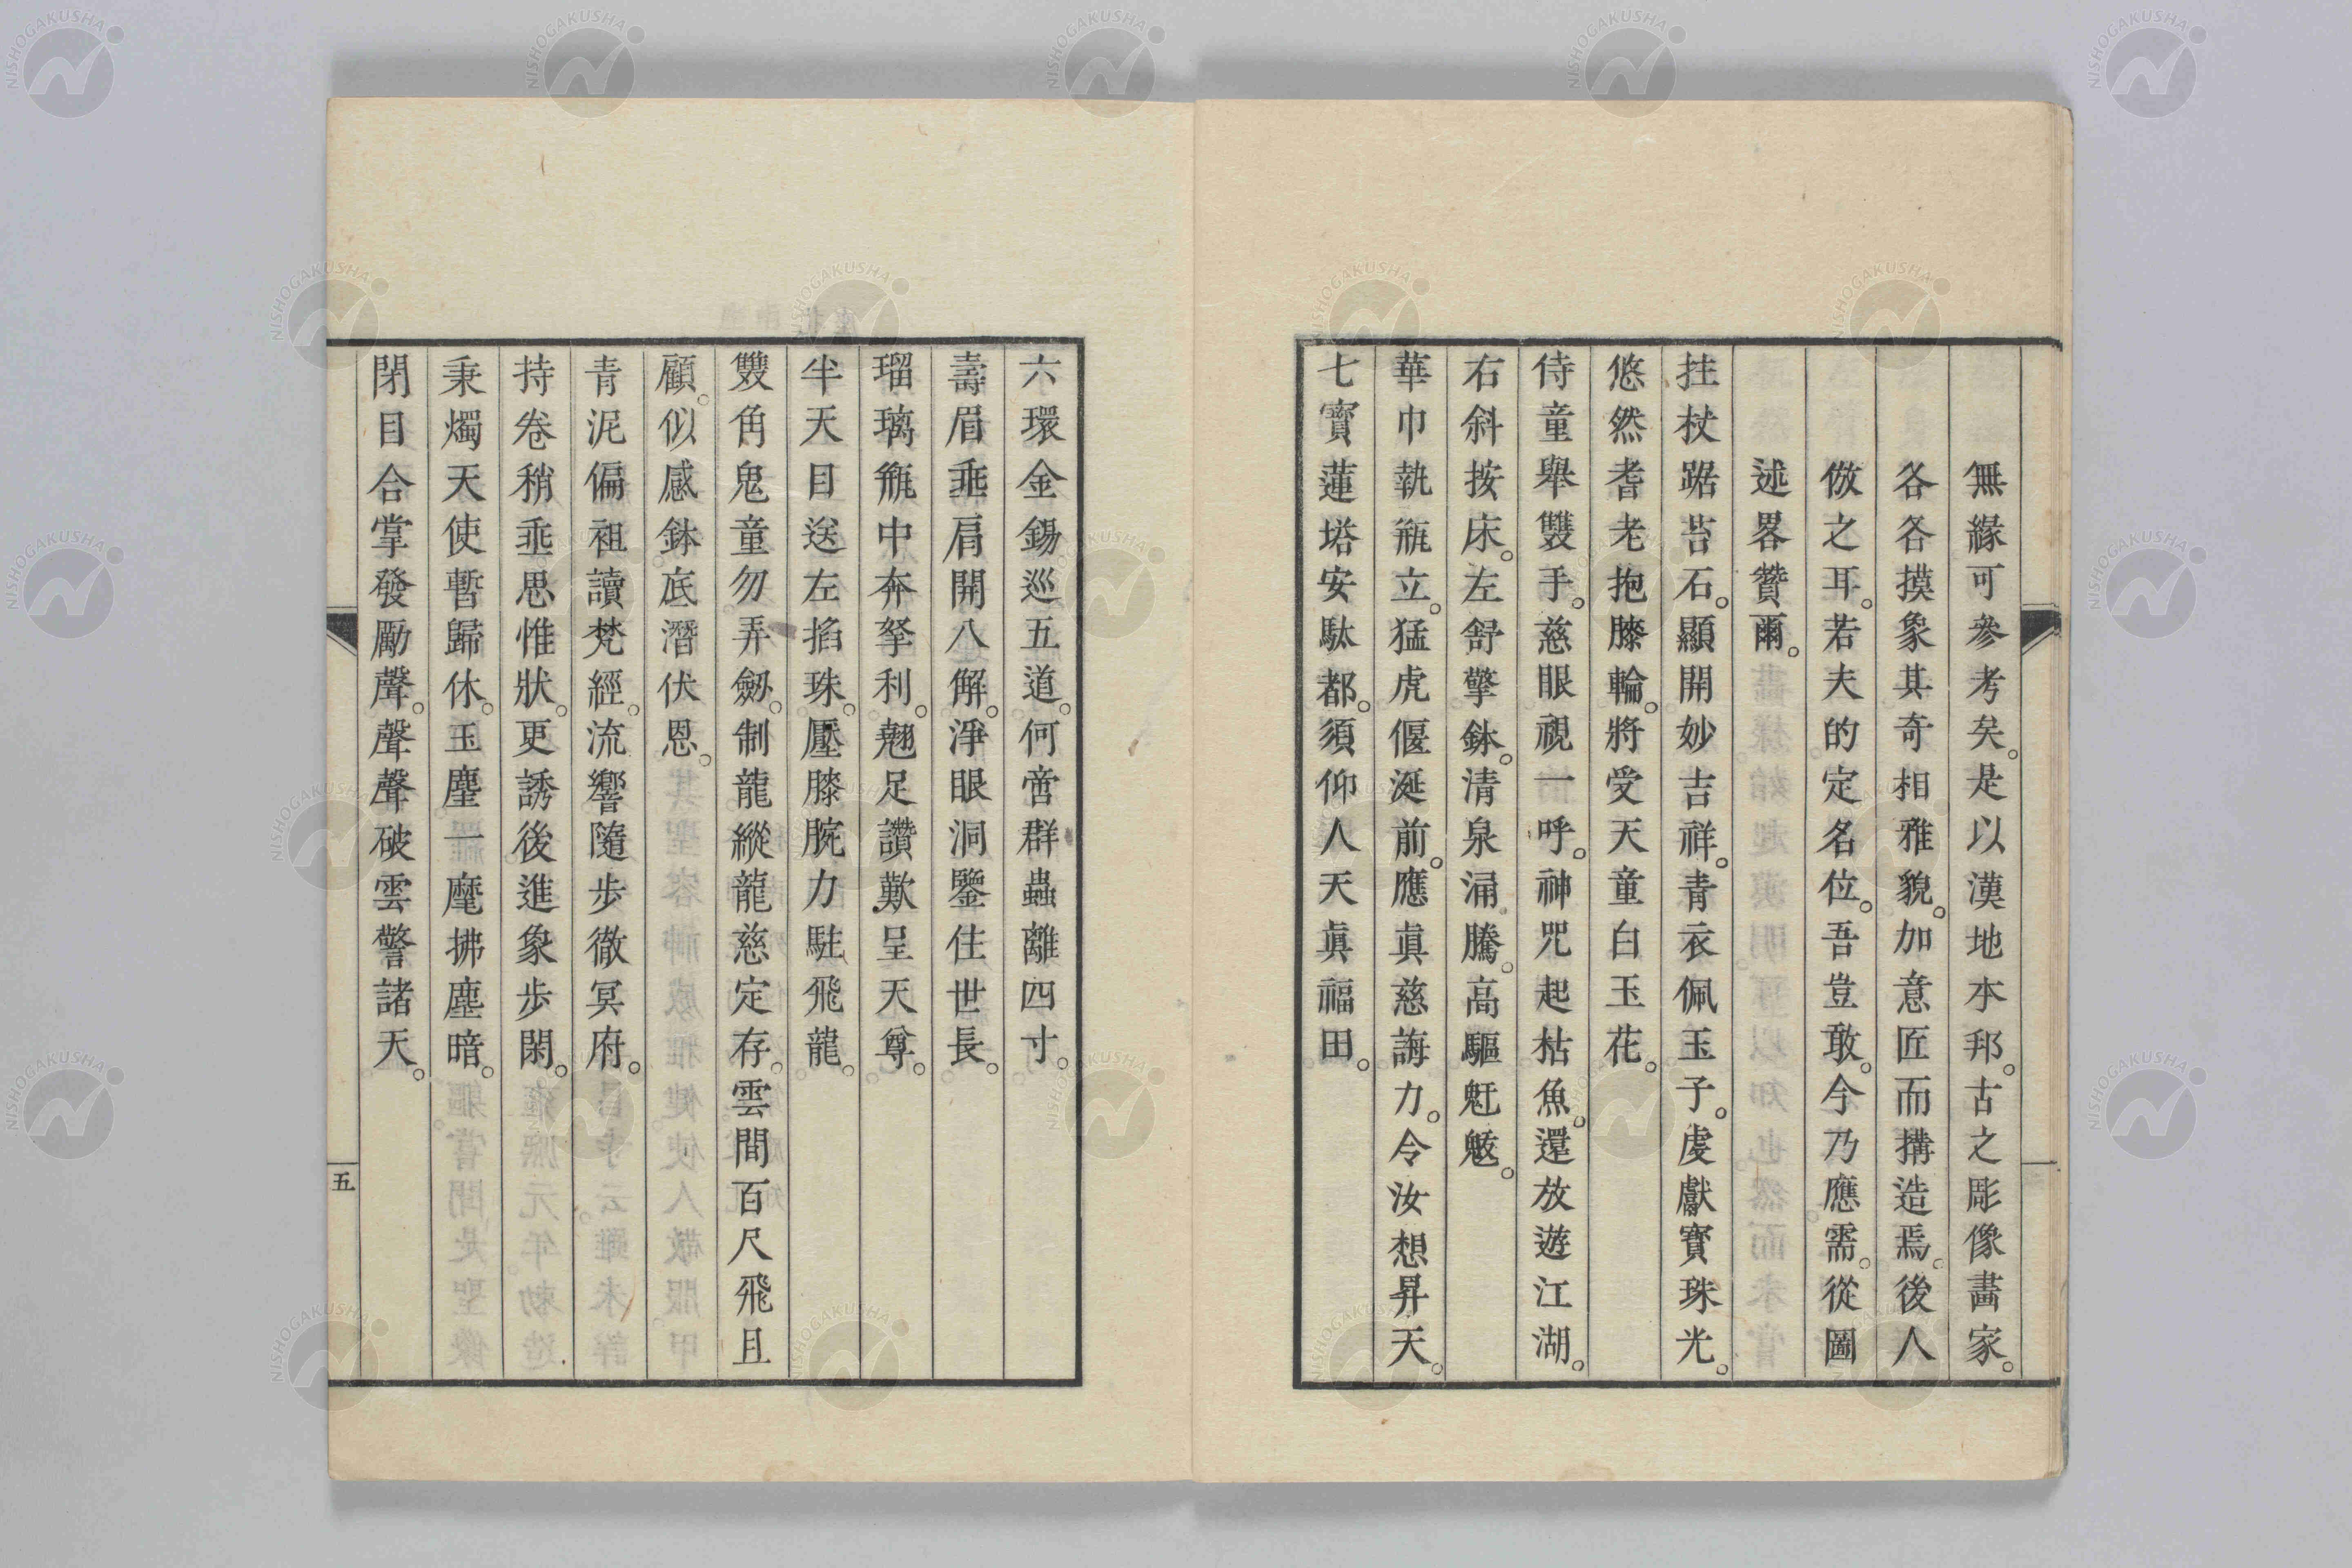 無緣可參考矣。是以漢地本邦。古之彫像畵家。
各各摸象其奇相雅貌。加意匠而搆造焉。後人
倣之耳。若夫的定名位。吾豈敢。今乃應需。從圖
述畧贊爾。
拄杖踞苔石。顯開妙吉祥。青衣佩玉子。虔獻寳珠光。
悠然耆老抱膝輪。將受天童白玉花。
侍童舉雙手。慈眼視一呼。神咒起枯魚。還放遊江湖。
右斜按床。左舒擎鉢。清泉涌騰。高驅魃。
華巾執瓶立。猛虎偃涎前。應眞慈誨力。令汝想昇天。
七寳蓮塔安馱都。須仰人天眞福田。
六環金錫巡五道。何啻群蟲離四寸。
壽眉垂肩開八解。淨眼洞鑒住世長。
瑠璃瓶中奔拏利。翹足讚歎呈天尊。
半天目送左掐珠。壓膝腕力駐飛龍。
雙角鬼童勿弄劔。制龍縱龍慈定存。雲間百尺飛且
顧。似感鉢底潛伏恩。
青泥偏袒讀梵經。流響隨步徹冥府。
持卷稍垂思惟狀。更誘後進象步閑。
秉燭天使暫歸休。玉麈一麾拂塵暗。
閉目合掌發勵聲。聲聲破雲警諸天。
五
NISHOGAKUSHA